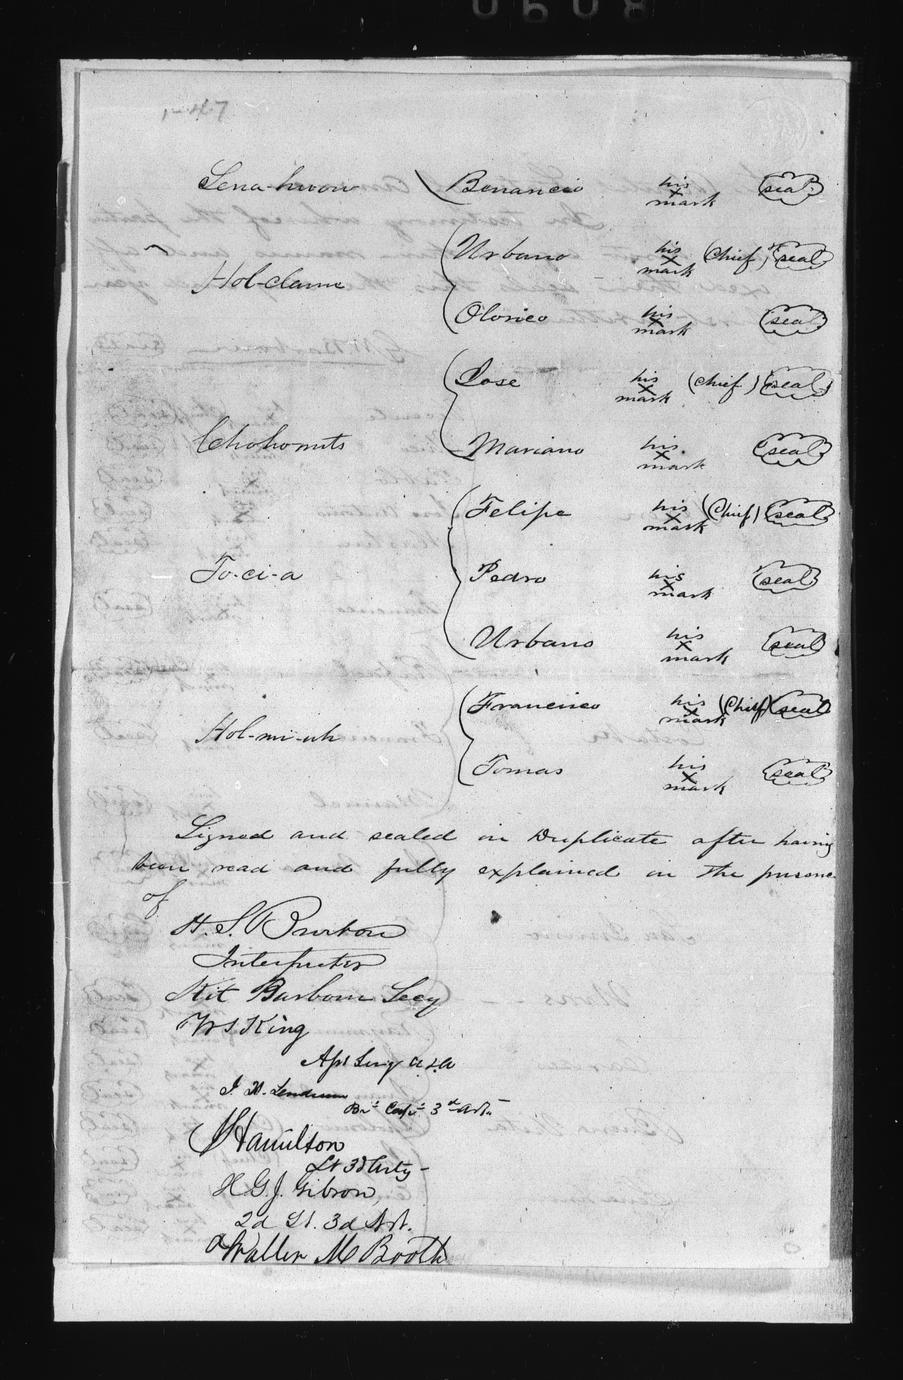 1-47
Sena-hwow Benancio his x mark seal
Hol-clame
Urbano his x mark (Chief) seal
Olorico his x mark seal
Chohonuts
Jose his x mark (Chief) seal
Mariano his x mark seal
To-ci-a
Felipe his x mark (Chief) seal
Pedro his x mark seal
Urbano his x mark seal
Hol-mi-uh
Francisco his x mark (Chief) seal
Tomas his x mark seal
Signed and sealed in Duplicate after having
been read and fully explained in the presence
of
H. S. Burton
Interpreter
Kit Barbour Secy
W S King
Asst Surg U.S.A
J. H. Lendrum
Bvt Capt 3rd Arty
J Hamilton
Lt 3d Arty
H G. J. Gibson,
2d Lt. 3d Art.
Walter M Booth